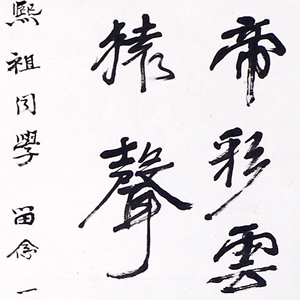 帝彩雲
猿聲
熙祖同學 留念 一